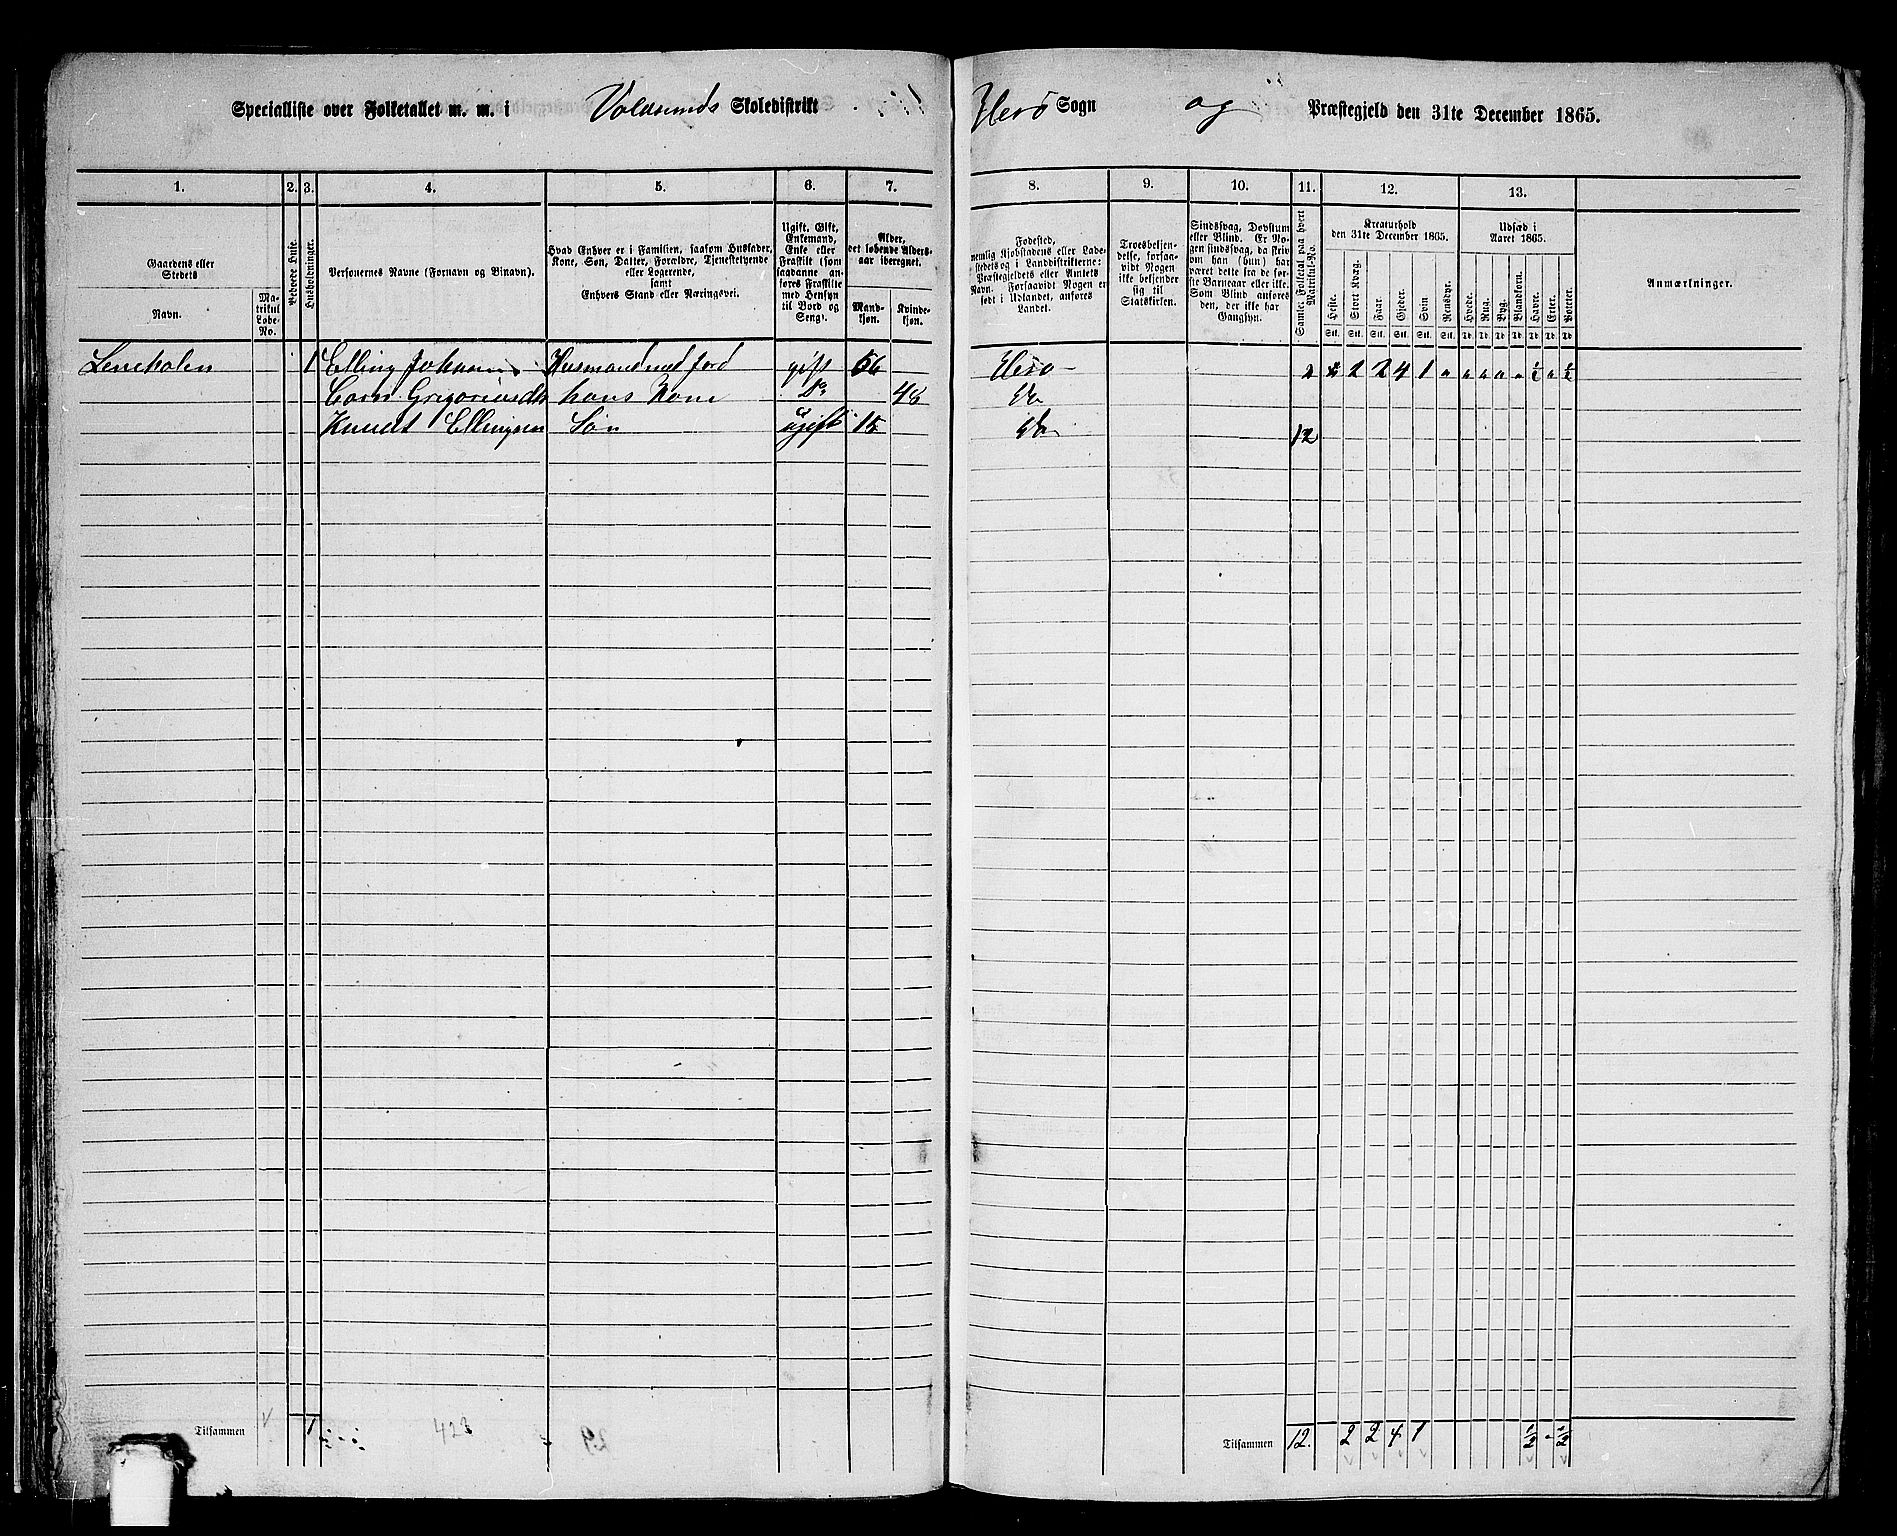 Specialliste over Folketallet m. m. i Voldsunds Skoledistrikt Herö Sogn og Præstegjeld den 31te December 1865.
1. 2. 3. 4. 5. 6. 7. 8. 9. 10. 11. 12. 13.
Gaardens eller Stedets
Navn.
Matrikul Løbe-No.
Beboede Huse.
Husholdninger.
Personernes Navne (Fornavn og Binavn).
Hvad Enhver er i Familien, saasom Husfader, Kone, Søn, Datter, Forældre, Tjenestetyende eller Logerende, samt Enhvers Stand eller Næringsvei.
Ugift, Gift, Enkemand, Enke eller Fraskilt (som saadanne anføres Fraskilte med Hensyn til Bord og Seng).
Alder, det løbende Alders-aar iberegnet.
Mandkjøn. Kvindekjøn.
Fødested, nemlig Kjøbstadens eller Ladestedets og i Landdistrikterne: Præstegjeldets eller Amtets Navn. Forsaavidt Nogen er født i Udlandet, anføres Landet.
Troesbekjendelse, forsaavidt Nogen ikke bekjender sig til Statskirken.
Sindssvag, Døvstum eller Blind. Er Nogen sindssvag, da skriv om han (hun) har været dette fra de første Barneaar eller ikke. Som Blind anføres den, der ikke har Gangsyn.
Samlet Folketal paa hvert Matrikul-No.
Kreaturhold den 31te December 1865.
Heste. Stort Kvæg. Faar. Gjeder. Svin. Rensdyr.
Udsæd i Aaret 1865.
Hvede. Rug. Byg. Blandkorn. Havre. Erter. Poteter.
Anmærkninger.
1 Elling Johann Husmand med Jord gift 56 Herö 2 " 2 2 4 1 " " " " " ½ " ½
hans Kone Do 48 Do
Knudt Ellingsen Søn ugift 15 Do 12
Tilsammen 1 423 29
Tilsammen 12. 2 2 4 1 ½ " ½